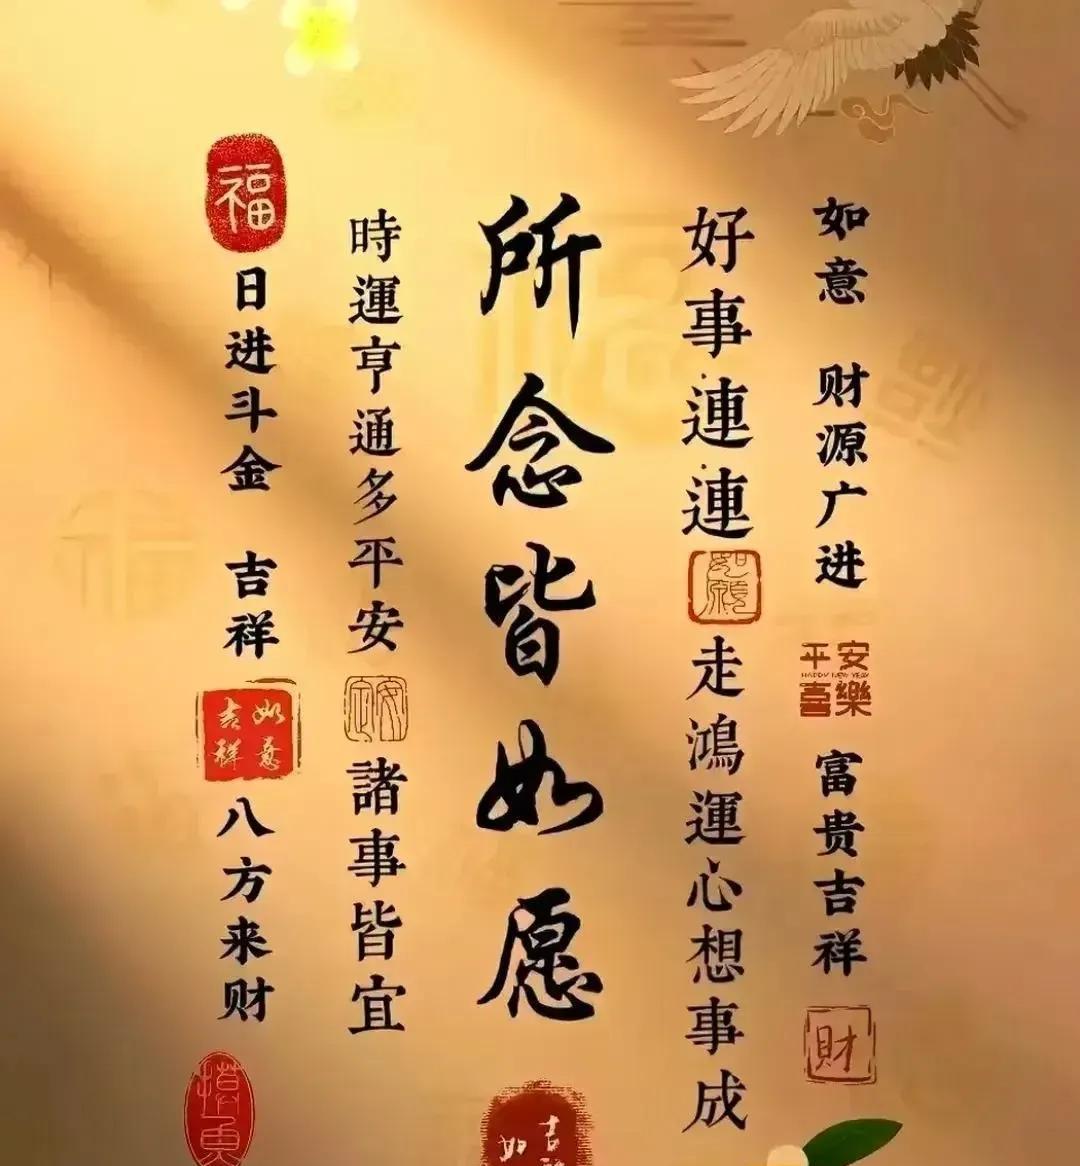 如意 财源广进
平安
HAPPY NEW YEAR
喜樂
富贵吉祥
財
好事連連
如願
走鴻運心想事成
所念皆如愿
時運亨通多平安
安定
諸事皆宜
福
日进斗金 吉祥
如意
吉祥
八方来财
吉
如